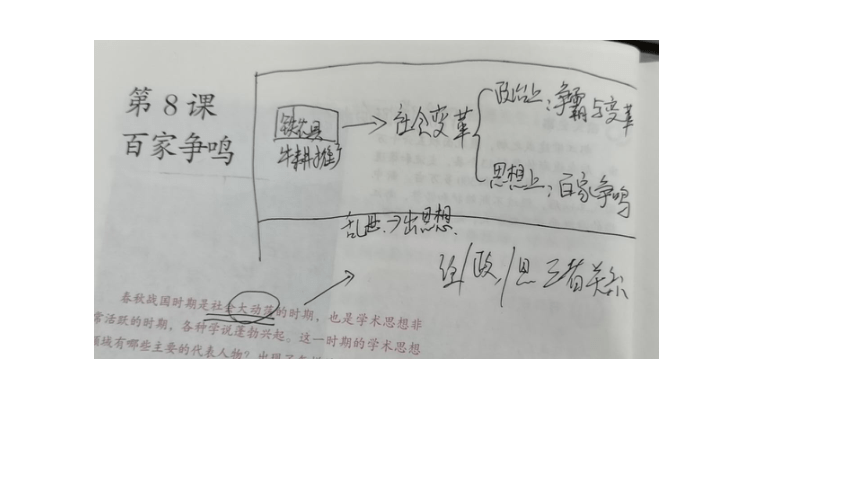 第8课
百家争鸣
铁农具
牛耕推广
社会变革
政治上：争霸与变革
思想上：百家争鸣
乱世→出思想.
经/政/思 三者关系
春秋战国时期是社会大动荡的时期，也是学术思想非
常活跃的时期，各种学说蓬勃兴起。这一时期的学术思想
领域有哪些主要的代表人物？出现了